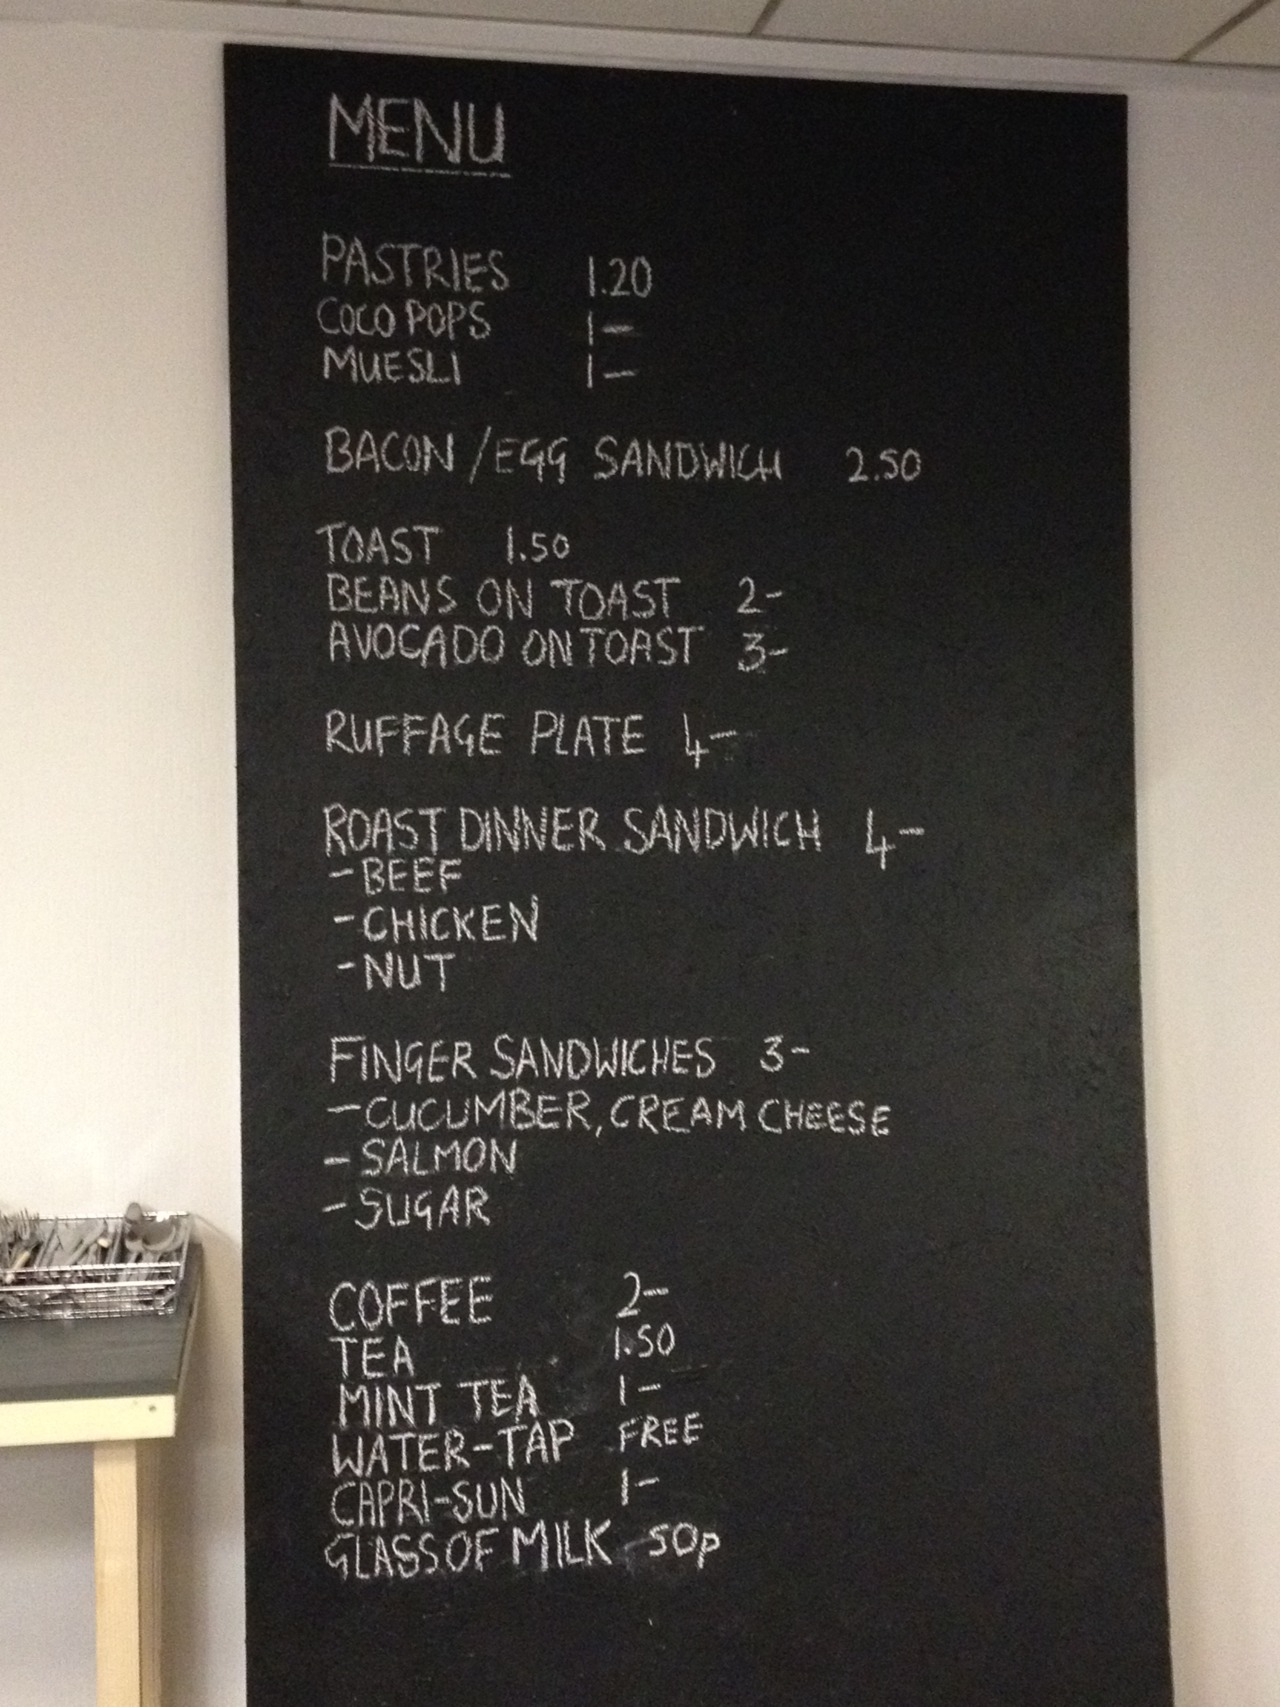 MENU
PASTRIES 1.20
COCO POPS 1—
MUESLI 1—
BACON/EGG SANDWICH 2.50
TOAST 1.50
BEANS ON TOAST 2-
AVOCADO ON TOAST 3-
RUFFAGE PLATE 4—
ROAST DINNER SANDWICH 4—
-BEEF
-CHICKEN
-NUT
FINGER SANDWICHES 3-
-CUCUMBER, CREAM CHEESE
-SALMON
-SUGAR
COFFEE 2—
TEA 1.50
MINT TEA 1-
WATER-TAP FREE
CAPRI-SUN 1-
GLASS OF MILK 50p